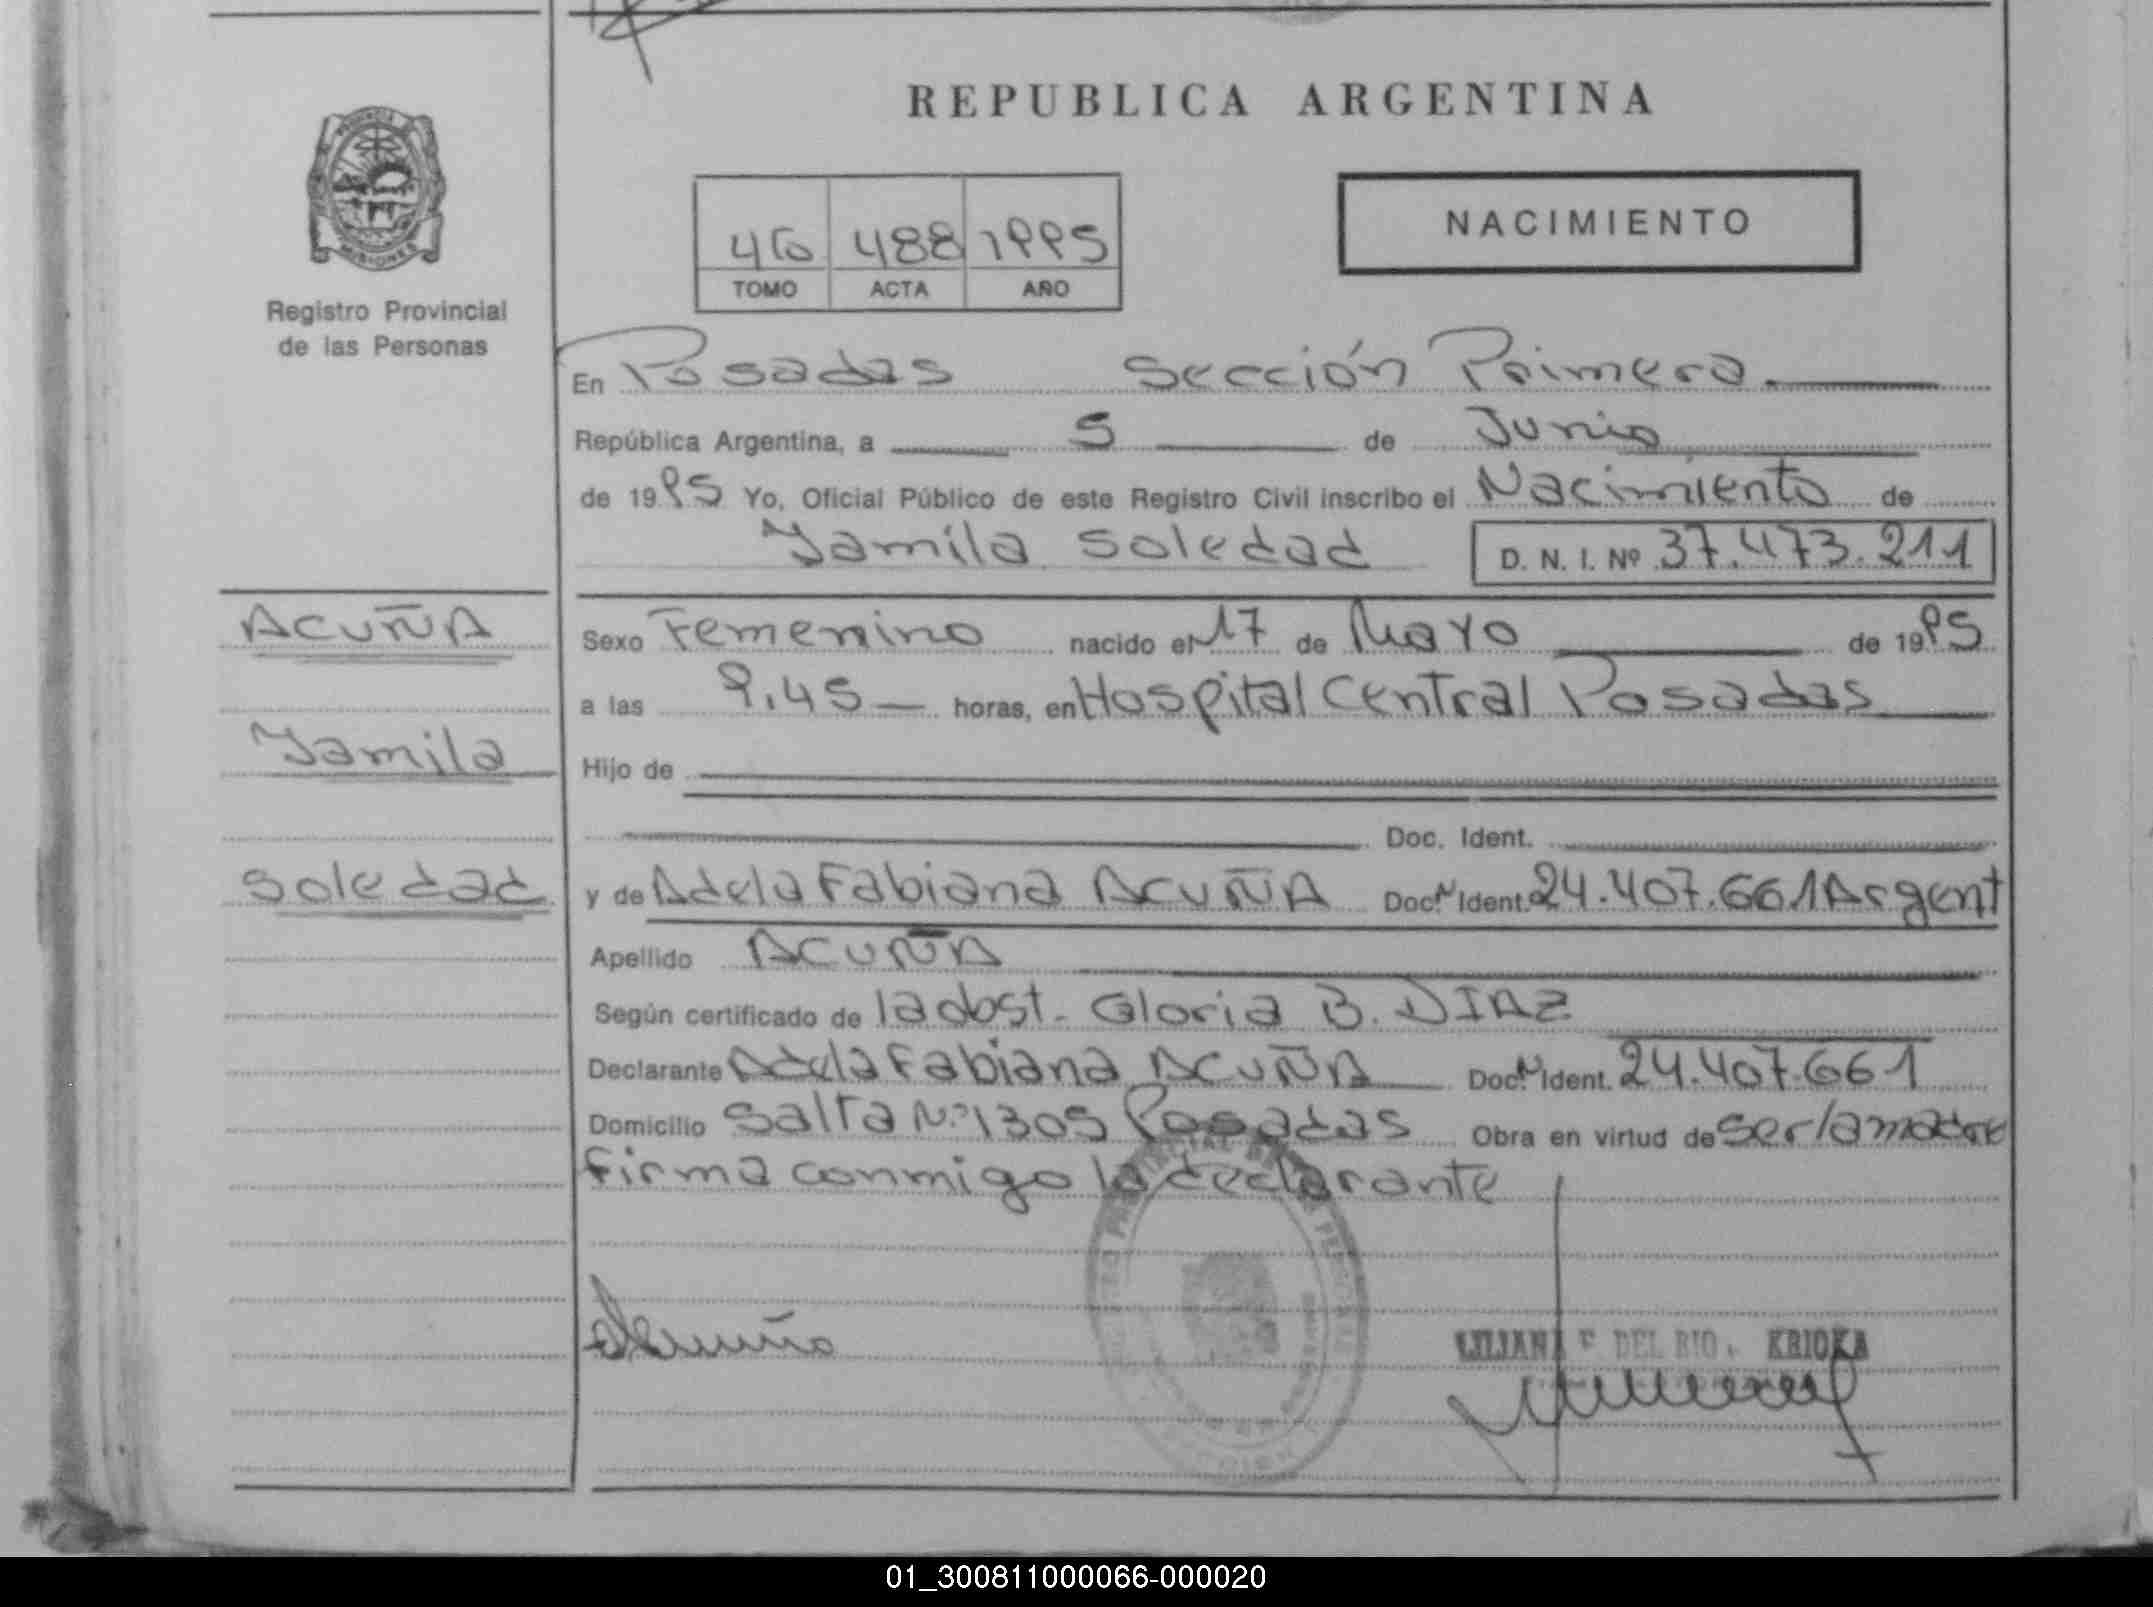 REPUBLICA ARGENTINA
NACIMIENTO
46 488 1995
TOMO ACTA AÑO
Registro Provincial
de las Personas
En Posadas Sección Primera.
República Argentina, a 5 de Junio
de 1995 Yo, Oficial Público de este Registro Civil inscribo el Nacimiento de
Yamila Soledad D. N. I. Nº 37.473.211
ACUÑA
Sexo Femenino nacido el 17 de Mayo de 1995
a las 9.45 horas, en Hospital Central Posadas
Yamila
Hijo de
Doc. Ident.
Soledad
y de Adela Fabiana ACUÑA Doc. N Ident. 24.407.661 Argent
Apellido ACUÑA
Según certificado de la obst. Gloria B. DIAZ
Declarante Adela Fabiana ACUÑA Doc. N Ident. 24.407.661
Domicilio Salta Nº 1305 Posadas Obra en virtud de ser la madre
firma conmigo la declarante
Acuña
LILIANA F. DEL RIO
01_300811000066-000020